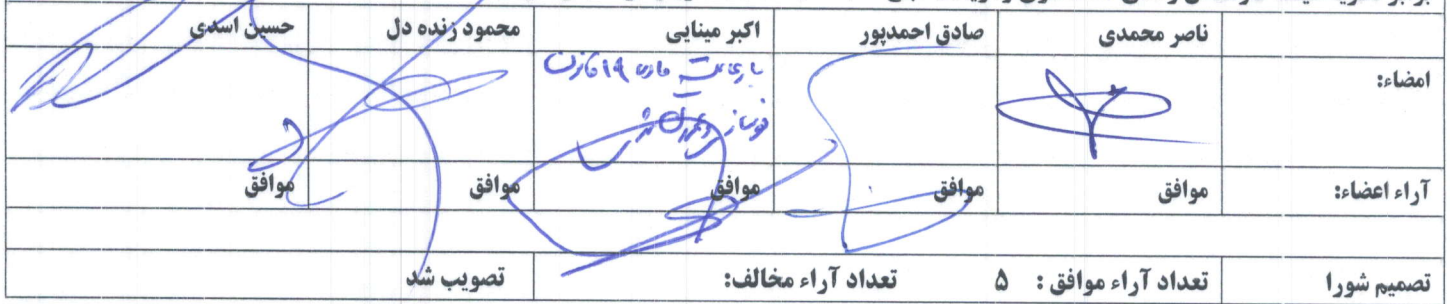 ناصر محمدی	صادق احمدپور	اکبر مینایی	محمود زنده دل	حسین اسدی
امضاء:
با رعایت ماده ۱۹ قانون
نوسازی و عمران شهری
آراء اعضاء:	موافق	موافق	موافق	موافق	موافق
تصمیم شورا	تعداد آراء موافق : ۵	تعداد آراء مخالف:	تصویب شد